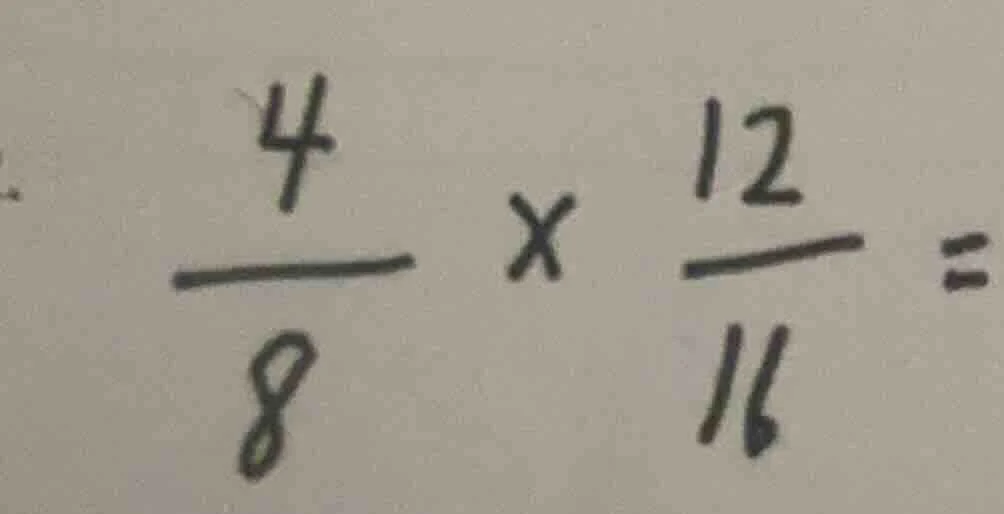 4/8 × 12/16 =